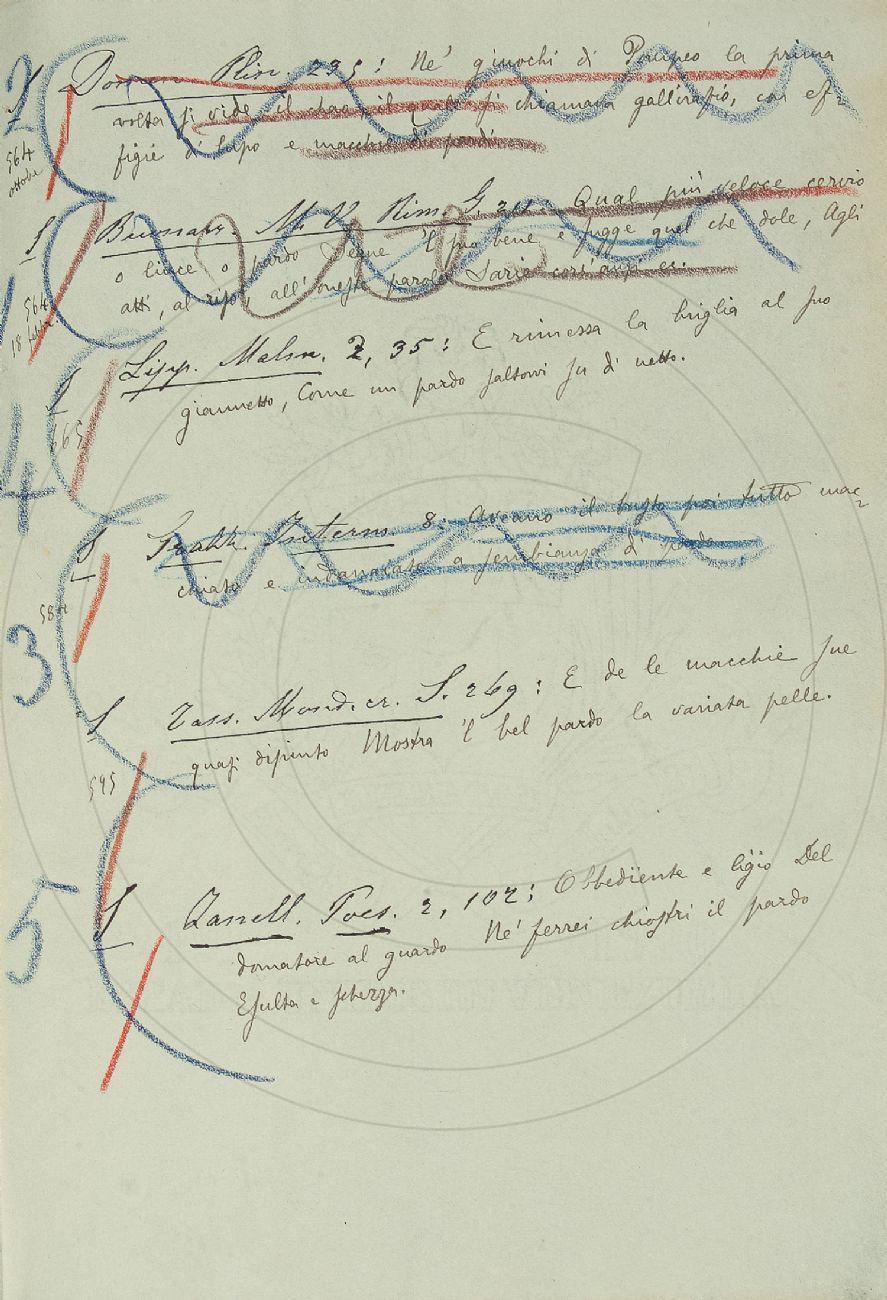 2 § Domen. Plin. 235: Ne' giuochi di Pompeo la prima
564 ottobre
volta si vide il chao, il quale si chiamava gallirafió, con ef=
figie di lupo e macchie di pardi.
1 § Buonarr. M. V. Rim. G. 211. Qual più veloce cervio
564 18 febbr.
o lince o pardo Segue 'l suo bene e fugge quel che dole, Agli
atti, al riso, all'oneste parole Saria
4 § Lipp. Malm. 2, 35: E rimessa la briglia al suo
giannetto, Come un pardo saltovvi su di netto.
665
§ Grazz. Interno 8: Aveano il busto poi tutto mac=
584
chiato e indanaiato a sembianza di pardo.
3
§ Tass. Mond. cr. S. 269: E de le macchie sue
595
quasi dipinto Mostra 'l bel pardo la variata pelle.
5 § Zanell. Poes. 2, 102: Obbedïente e ligïo Del
domatore al guardo Ne' ferrei chiostri il pardo
Esulta e scherza.